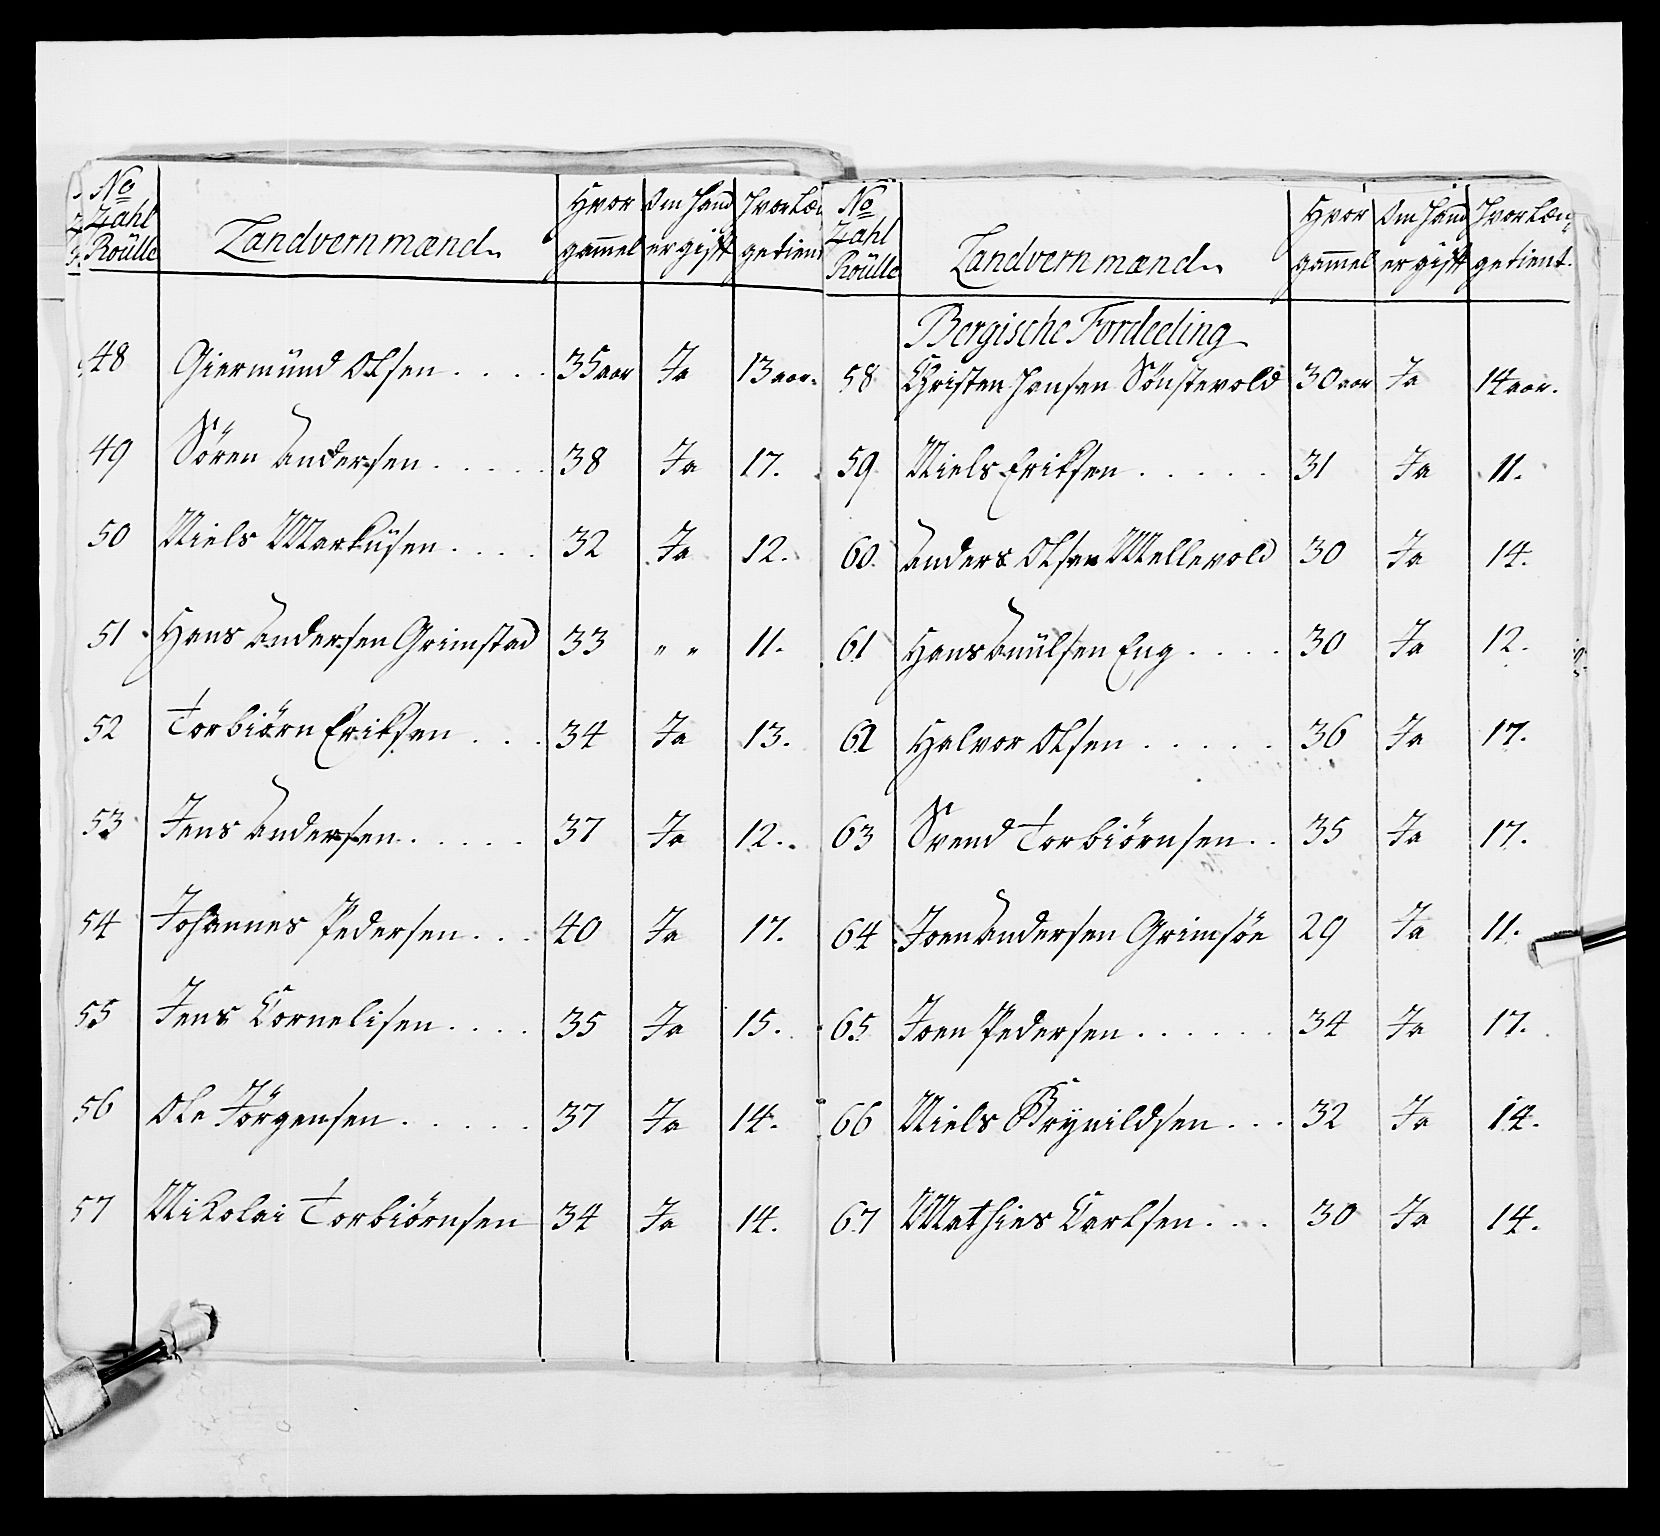 No Zahl Roülle | Landvernmænd. | Hvor gammel | Om hand er gift | Hvor Læn getient
48 Giermünd Olsen . . . . 35 aar Ja 13 aar.
49 Sören Andersen . . . . . 38 Ja 17.
50 Niels Marküsen . . . . 32 Ja 12.
51 Hans Andersen Grimstad 33 " " 11.
52 Torbiörn Eriksen . . . 34 Ja 13.
53 Jens Andersen . . . . . 37 Ja 12.
54 Johannes Pedersen . . . 40 Ja 17.
55 Jens Cornelisen . . . . 35 Ja 15.
56 Ole Jörgensen . . . . . 37 Ja 14.
57 Nikolai Torbiörnsen 34 Ja 14.
No Zahl Roülle | Landvernmænd. | Hvor gammel | Om hand er gift | Hvor Læn, getient.
Bergische Fordeeling
58 Christen Hansen Sönstevold 30 aar Ja 14 aar.
59 Niels Eriksen . . . . . 31 Ja 11.
60. Anders Olsen Mellevold 30 Ja 14.
61 Hans Anülsen Eng . . . . 30 Ja 12.
62 Halvor Olsen . . . . . 36 Ja 17.
63 Svend Torbiörnsen . . 35 Ja 17.
64 Joen Andersen Grimsöe 29 Ja 11.
65 Joen Pedersen . . . . . . 34 Ja 17.
66 Niels Brynildsen . . . 32 Ja 14.
67 Mathies Carlsen . . . 30 Ja 14.